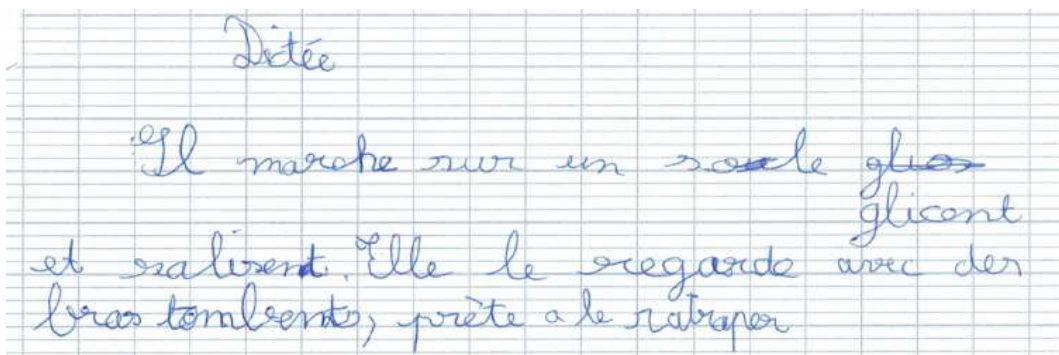 Dictée
Il marche sur un sole
glicent
et ralisent. Elle le regarde avec des
bras tombents, prète a le ratraper